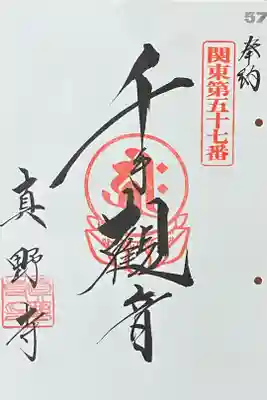 57
奉納
関東第五十七番
千手観音
真野寺